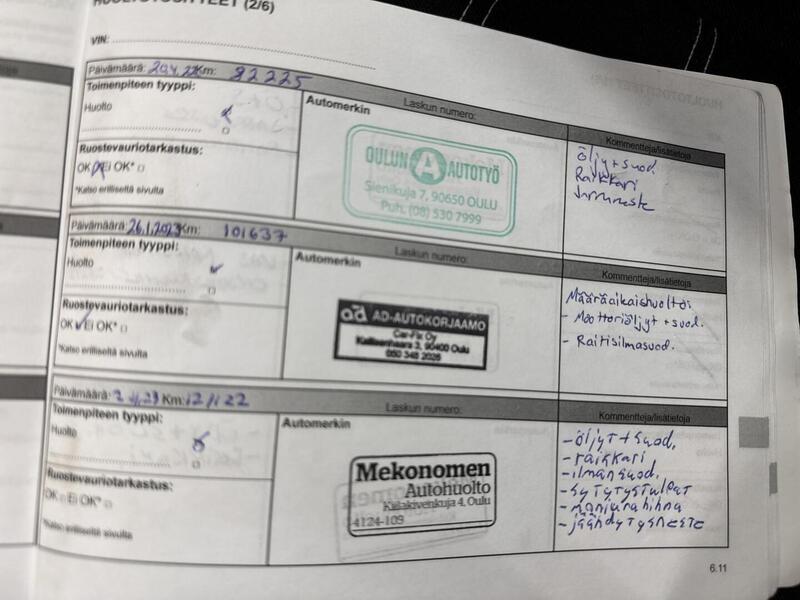 (2/6)
VIN:
Päivämäärä: 20.4.22 Km: 82225
Toimenpiteen tyyppi:
Huolto
Ruostevauriotarkastus:
OK Ei OK*
*Katso erilliseltä sivulta
Automerkin
Laskun numero:
OULUN A AUTOTYÖ
Sienikuja 7, 90650 OULU
Puh. (08) 530 7999
Kommentteja/lisätietoja
Öljy + suod.
Raikkari
Jarruneste
Päivämäärä: 26.1.2023 Km: 101637
Toimenpiteen tyyppi:
Huolto
Ruostevauriotarkastus:
OK Ei OK*
*Katso erilliseltä sivulta
Automerkin
Laskun numero:
ad AD-AUTOKORJAAMO
Car-Fix Oy
90400 Oulu
Kommentteja/lisätietoja
Määräaikaishuolto:
- Moottoriöljyt + suod.
- Raitisilmasuod.
Päivämäärä: Km: 121122
Toimenpiteen tyyppi:
Huolto
Ruostevauriotarkastus:
OK Ei OK*
*Katso erilliseltä sivulta
Automerkin
Laskun numero:
Mekonomen
Autohuolto
Kiilakivenkuja 4, Oulu
4124-109
Kommentteja/lisätietoja
- öljyt + suod.
- raikkari
- ilmansuod.
- sytytystulpat
- moniurahihna
- jäähdytysneste
6.11